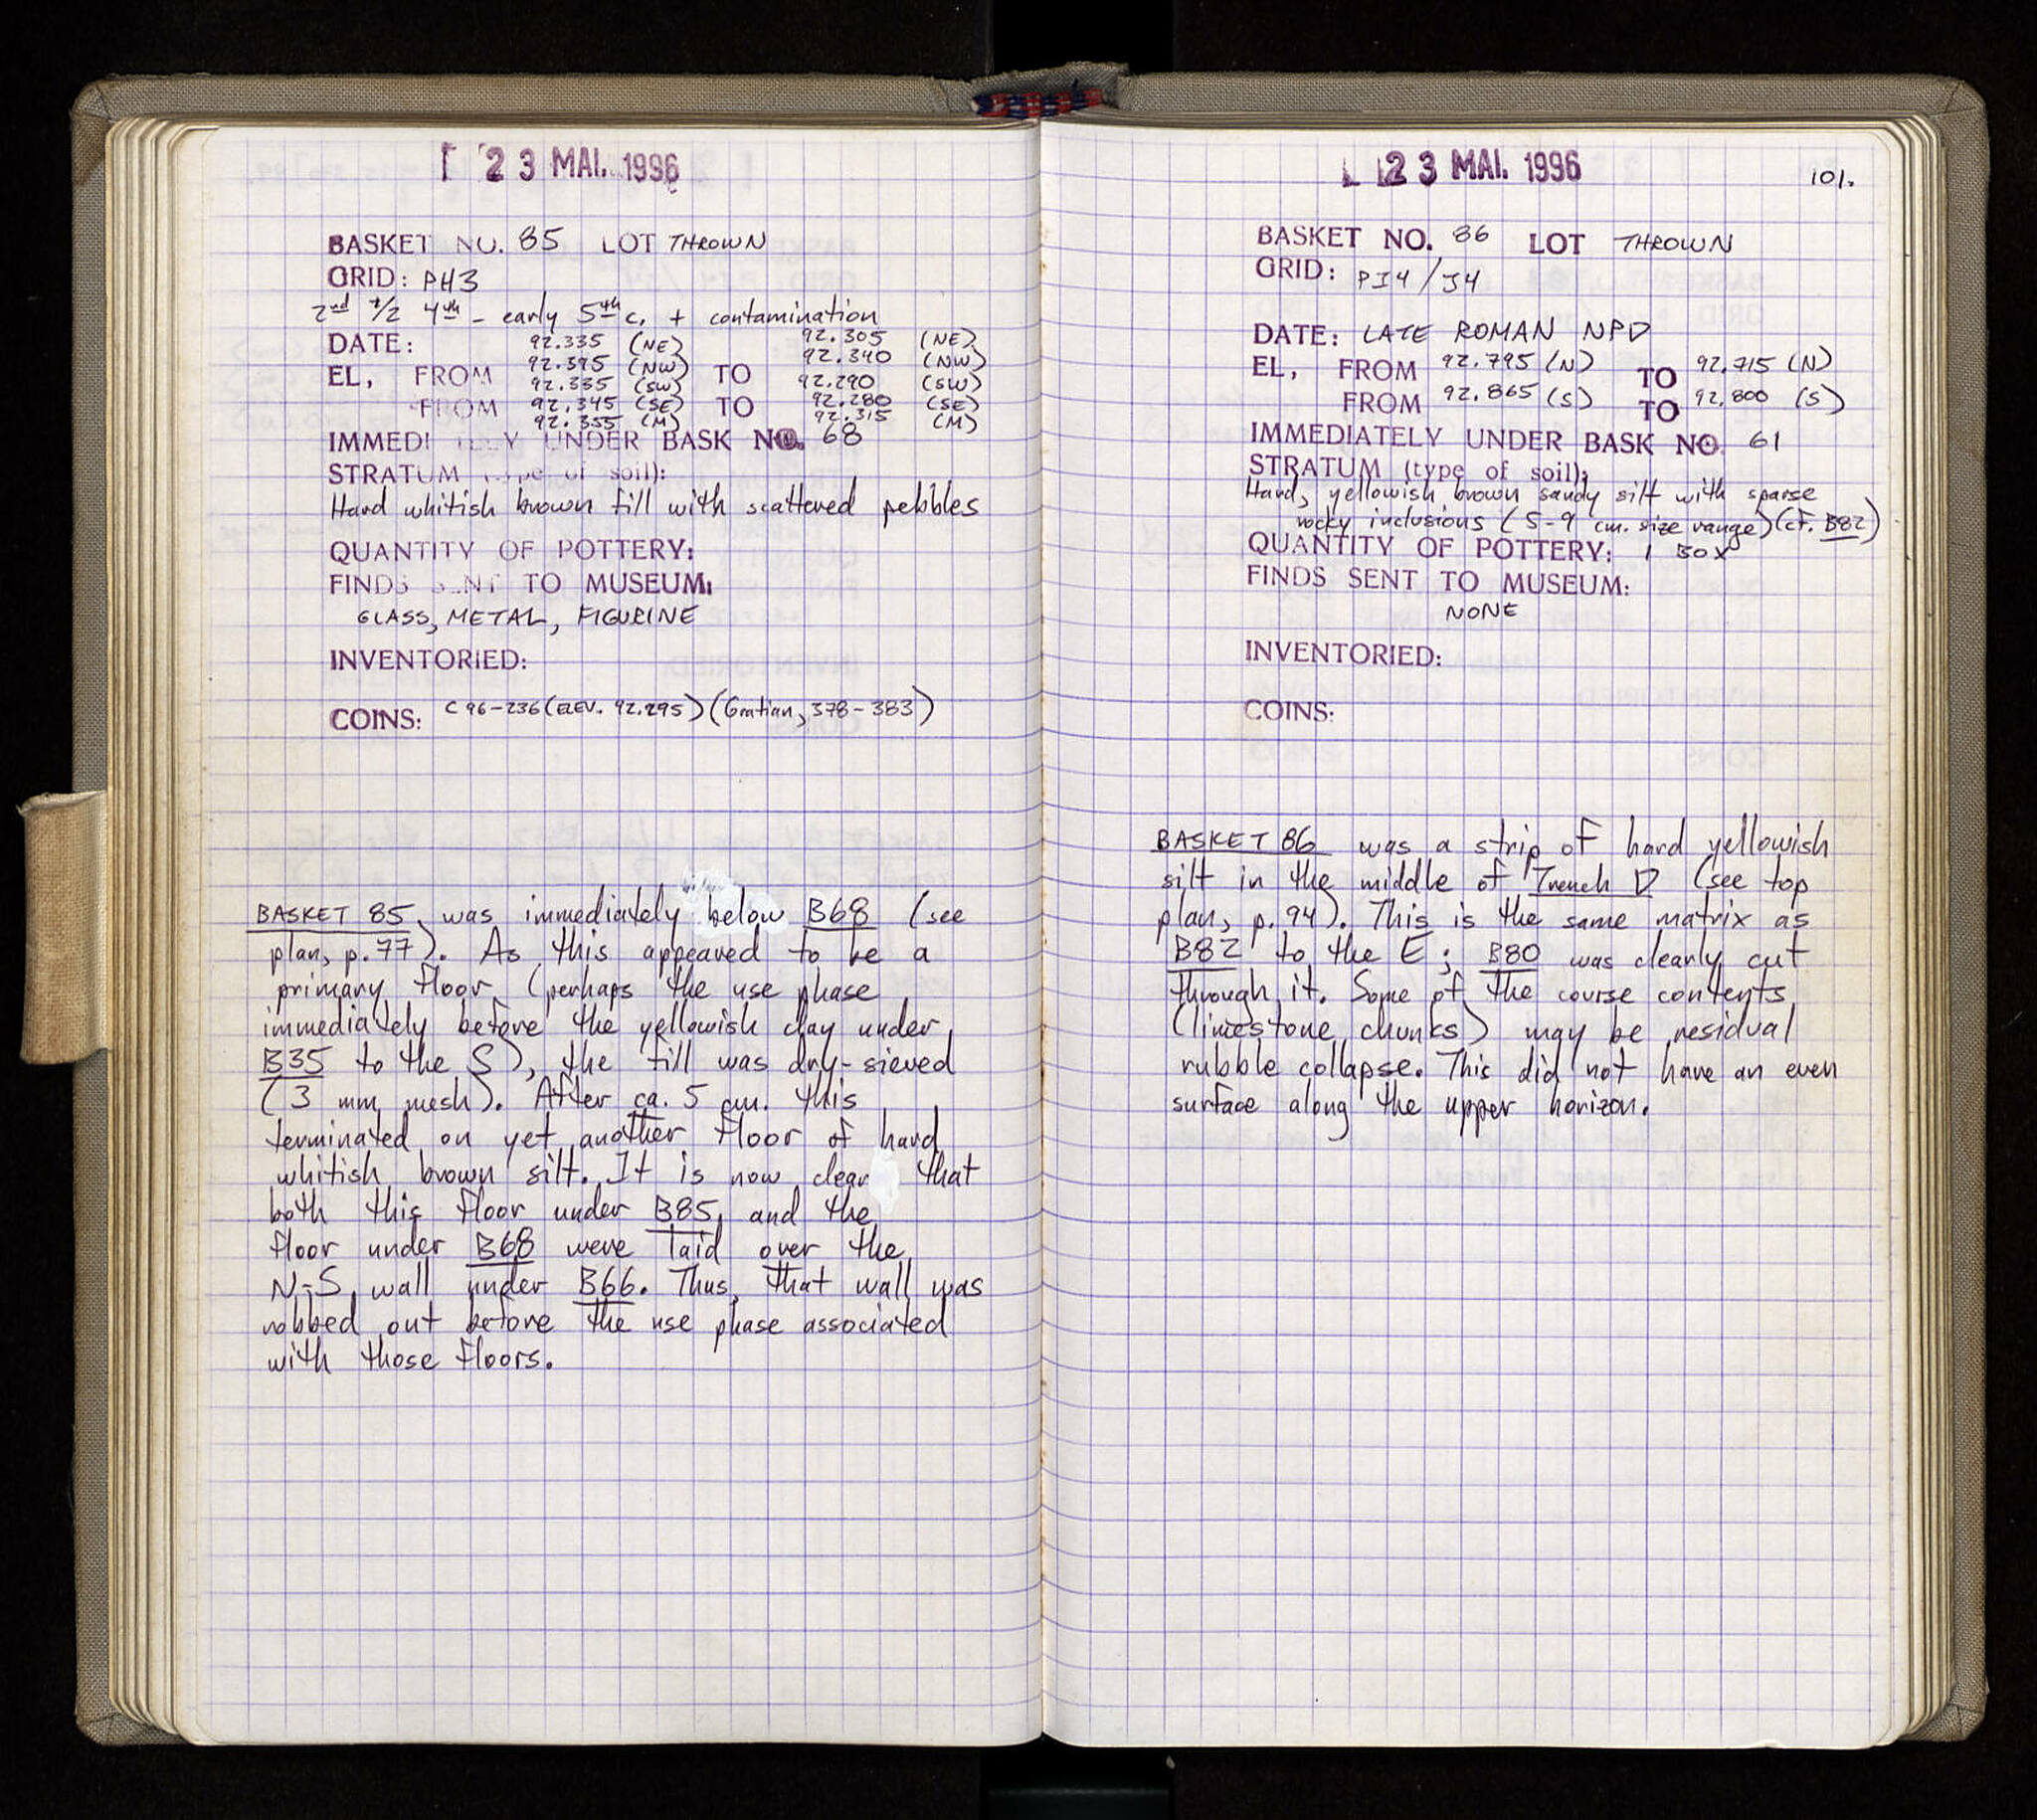 23 MAI. 1996
BASKET NO. 85 LOT THROWN
GRID: PH3
2nd 1/2 4th - early 5th c. + contamination
DATE: 92.335 (NE) 92.305 (NE)
92.395 (NW) 92.340 (NW)
EL, FROM 92.335 (SW) TO 92.290 (SW)
FROM 92.345 (SE) TO 92.280 (SE)
92.355 (M) 92.315 (M)
IMMEDI ELY UNDER BASK NO. 68
STRATUM (type of soil):
Hard whitish brown fill with scattered pebbles
QUANTITY OF POTTERY:
FINDS SENT TO MUSEUM:
GLASS, METAL, FIGURINE
INVENTORIED:
COINS: C 96-236 (ELEV. 92.295) (Gratian, 378-383)
BASKET 85 was immediately below B68 (see
plan, p. 77). As this appeared to be a
primary floor (perhaps the use phase
immediately before the yellowish clay under
B35 to the S), the fill was dry-sieved
(3 mm mesh). After ca. 5 cm. this
terminated on yet another floor of hard
whitish brown silt. It is now clear that
both this floor under B85, and the
floor under B68 were laid over the
N-S wall under B66. Thus, that wall was
robbed out before the use phase associated
with those floors.
23 MAI. 1996
101.
BASKET NO. 86 LOT THROWN
GRID: PI4/J4
DATE: LATE ROMAN NPD
EL, FROM 92.795 (N) TO 92.715 (N)
FROM 92.865 (S) TO 92.800 (S)
IMMEDIATELY UNDER BASK NO. 61
STRATUM (type of soil):
Hard, yellowish brown sandy silt with sparse
rocky inclusions (5-9 cm. size range) (cf. B82)
QUANTITY OF POTTERY: 1 BOX
FINDS SENT TO MUSEUM:
NONE
INVENTORIED:
COINS:
BASKET 86 was a strip of hard yellowish
silt in the middle of Trench D (see top
plan, p. 94). This is the same matrix as
B82 to the E; B80 was clearly cut
through it. Some of the course contents
(limestone chunks) may be residual
rubble collapse. This did not have an even
surface along the upper horizon.